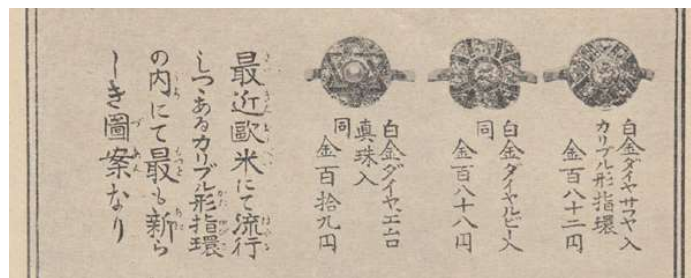 白金ダイヤサフヤ入
カリブル形指環
金百八十二円
白金ダイヤルビー入
同
金百八十八円
白金ダイヤ、エムロ
眞珠入
同
金百拾九円
最近歐米にて流行
しつゝあるカリブル形指環
の内にて最も新ら
しき圖案なり